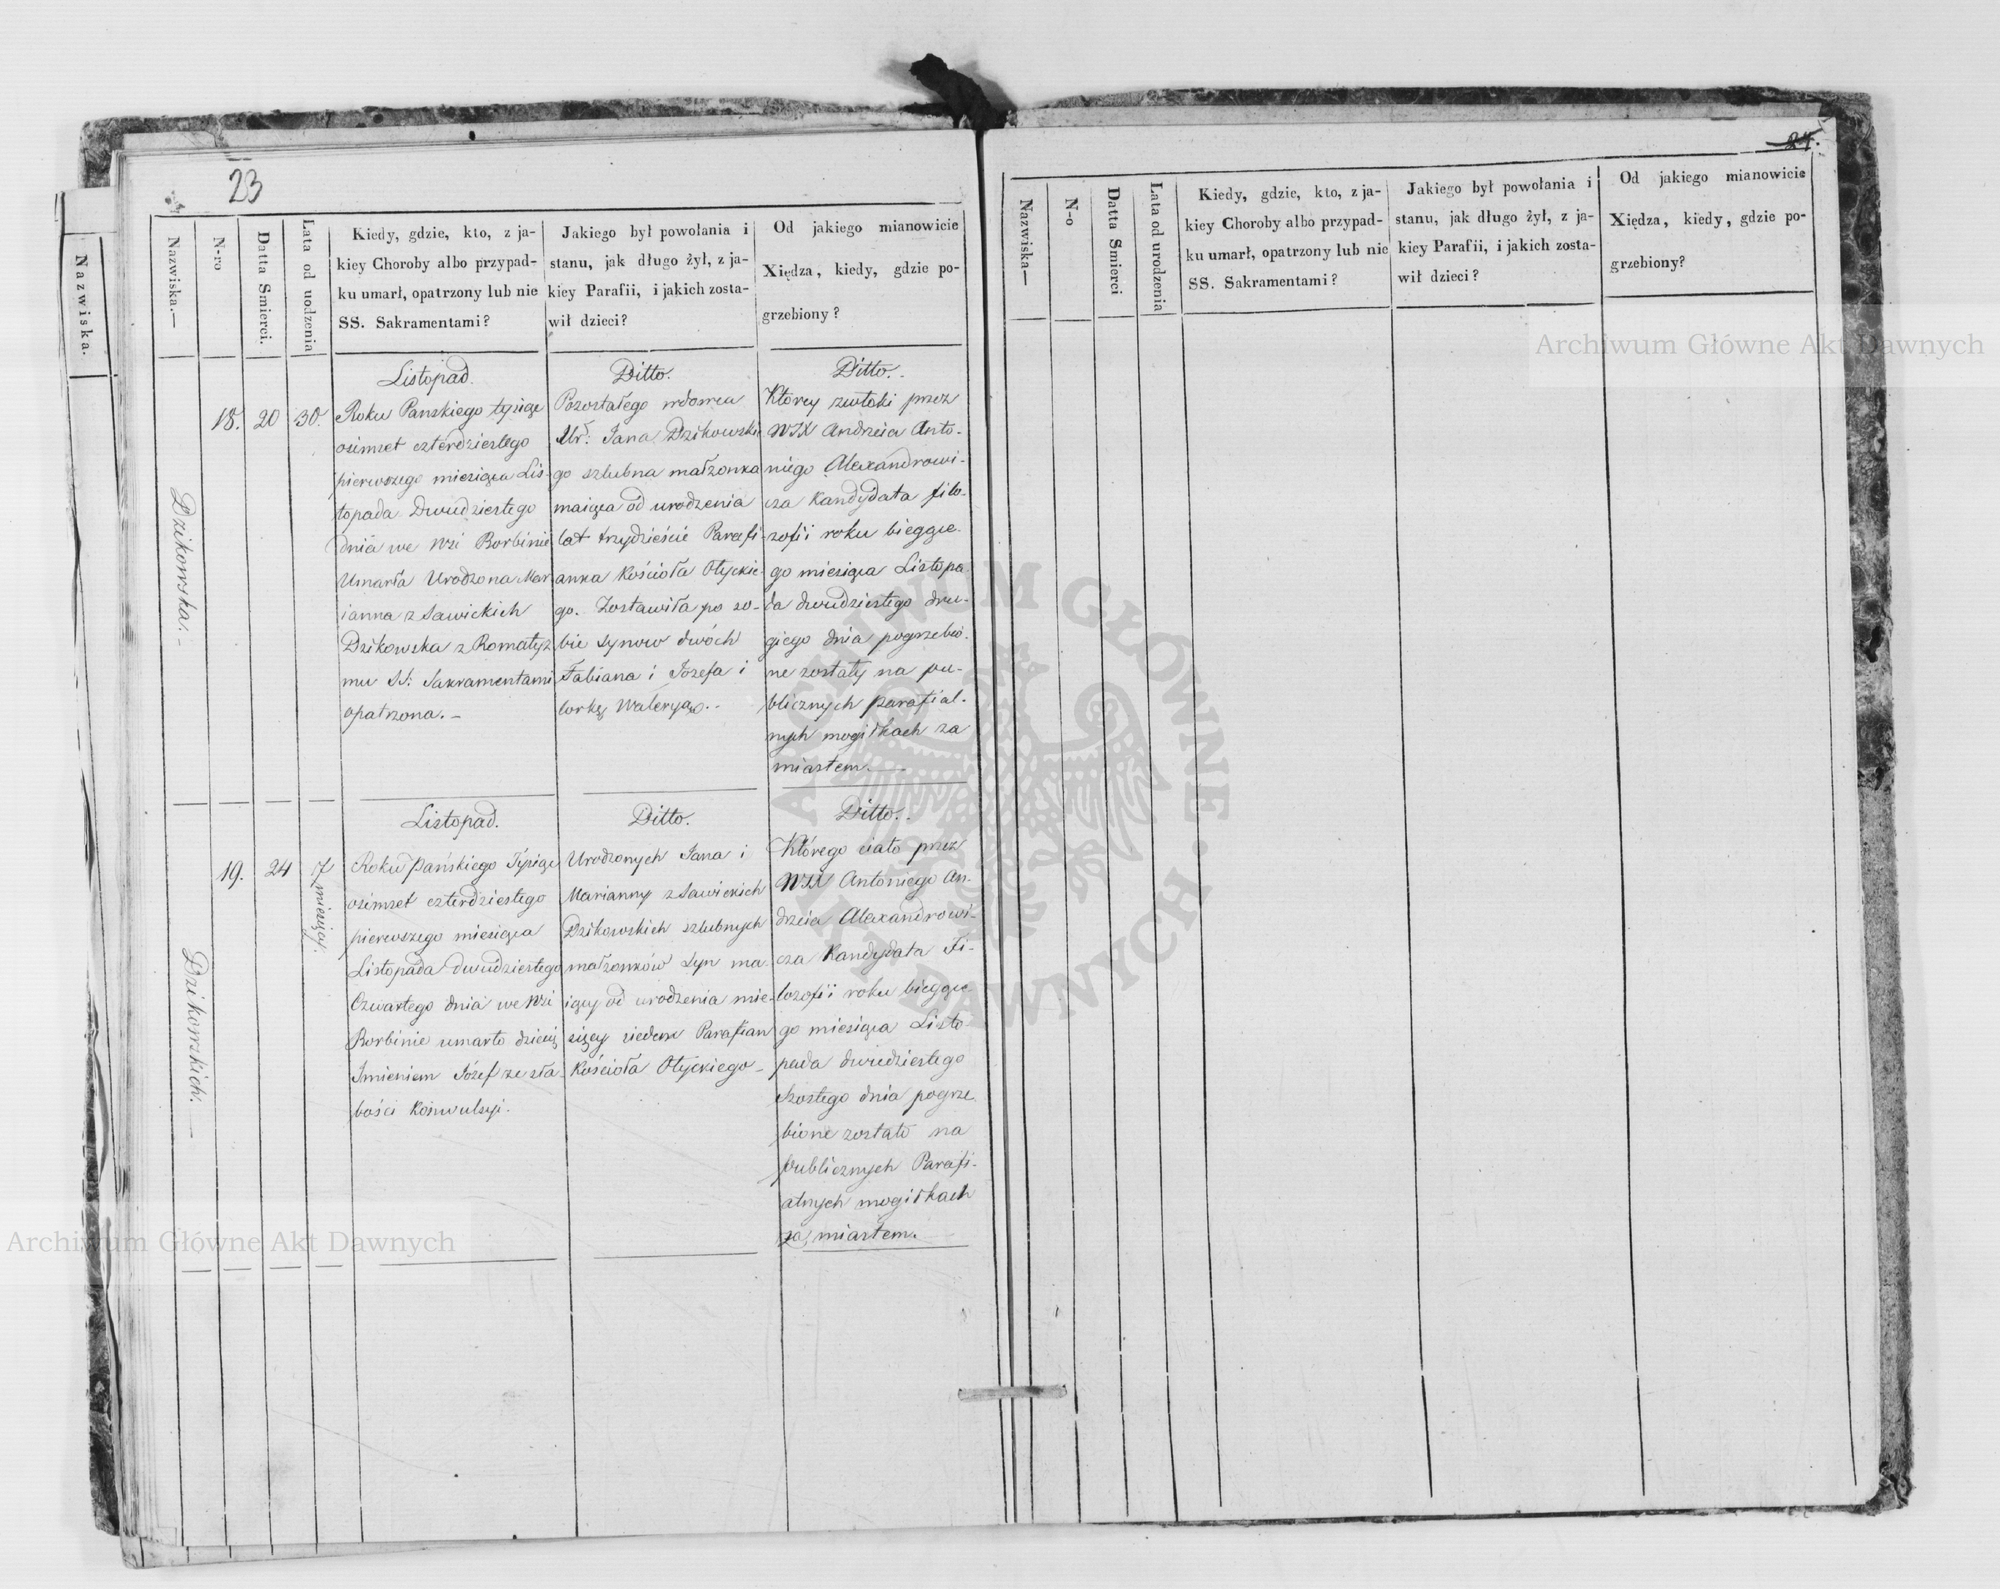 23
Nazwiska.
Nazwiska.—
N-ro
Datta Smierci.
Lata od uodzenia
Kiedy, gdzie, kto, z ja-
kiey Choroby albo przypad-
ku umarł, opatrzony lub nie
SS. Sakramentami?
Jakiego był powołania i
stanu, jak długo żył, z ja-
kiey Parafii, i jakich zosta-
wił dzieci?
Od jakiego mianowicie
Xiędza, kiedy, gdzie po-
grzebiony?
Dzikowska.-
18.
20
30.
Listopad.
Roku Panskiego tysiąc
osimset czterdziestego
pierwszego miesiąca Lis-
topada Dwudziestego
dnia we Wsi Borbinie
Umarła Urodzona Mar
ianna z Sawickich
Dzikowska z Romatyz
mu SS: Sakramentami
opatrzona.-
Ditto.
Pozostałego wdowca
Ur: Jana Dzikowskie
go szlubna małżonka
maiąca od urodzenia
lat trzydzieście Parafi-
anka Kościoła Ołyckie-
go. Zostawiła po so-
bie synow dwóch
Fabiana i Józefa i
corkę Waleryą.-
Ditto.
Ktorey zwłoki przez
WJX Andrzeia Anto-
niego Alexandrowi-
cza Kandydata filo-
zofii roku bieggce-
go miesiąca Listopa
da dwudziestego dru-
giego dnia pogrzebio-
ne zostały na pu-
blicznych parafial-
nych mogiłkach za
miastem.
Dzikowskich.-
19.
24
7 miesięcy.
Listopad.
Roku Pańskiego Tysiąc
osimset czterdziestego
pierwszego miesiąca
Listopada dwudziestego
Czwartego dnia we Wsi
Borbinie umarło dziecię
Imieniem Józef ze sła-
bości Konwulsyi.
Ditto.
Urodzonych Jana i
Marianny z Sawickich
Dzikowskich szlubnych
małżonków syn ma-
iący od urodzenia mie-
sięcy siedem Parafian
Kościoła Ołyckiego-
Ditto.
Którego ciało przez
WJX Antoniego An-
drzeia Alexandrowi-
cza Kandydata Fi-
lozofii roku bieggce-
go miesiąca Listo-
pada dwudziestego
Szostego dnia pogrze
bione zostało na
publicznych Parafi-
alnych mogiłkach
za miastem.
24.
Nazwiska—
N-o
Datta Smierci
Lata od urodzenia
Kiedy, gdzie, kto, z ja-
kiey Choroby albo przypad-
ku umarł, opatrzony lub nie
SS. Sakramentami?
Jakiego był powołania i
stanu, jak długo żył, z ja-
kiey Parafii, i jakich zosta-
wił dzieci?
Od jakiego mianowicie
Xiędza, kiedy, gdzie po-
grzebiony?
Archiwum Główne Akt Dawnych
Archiwum Główne Akt Dawnych
ARCHIWUM GŁÓWNE AKT DAWNYCH